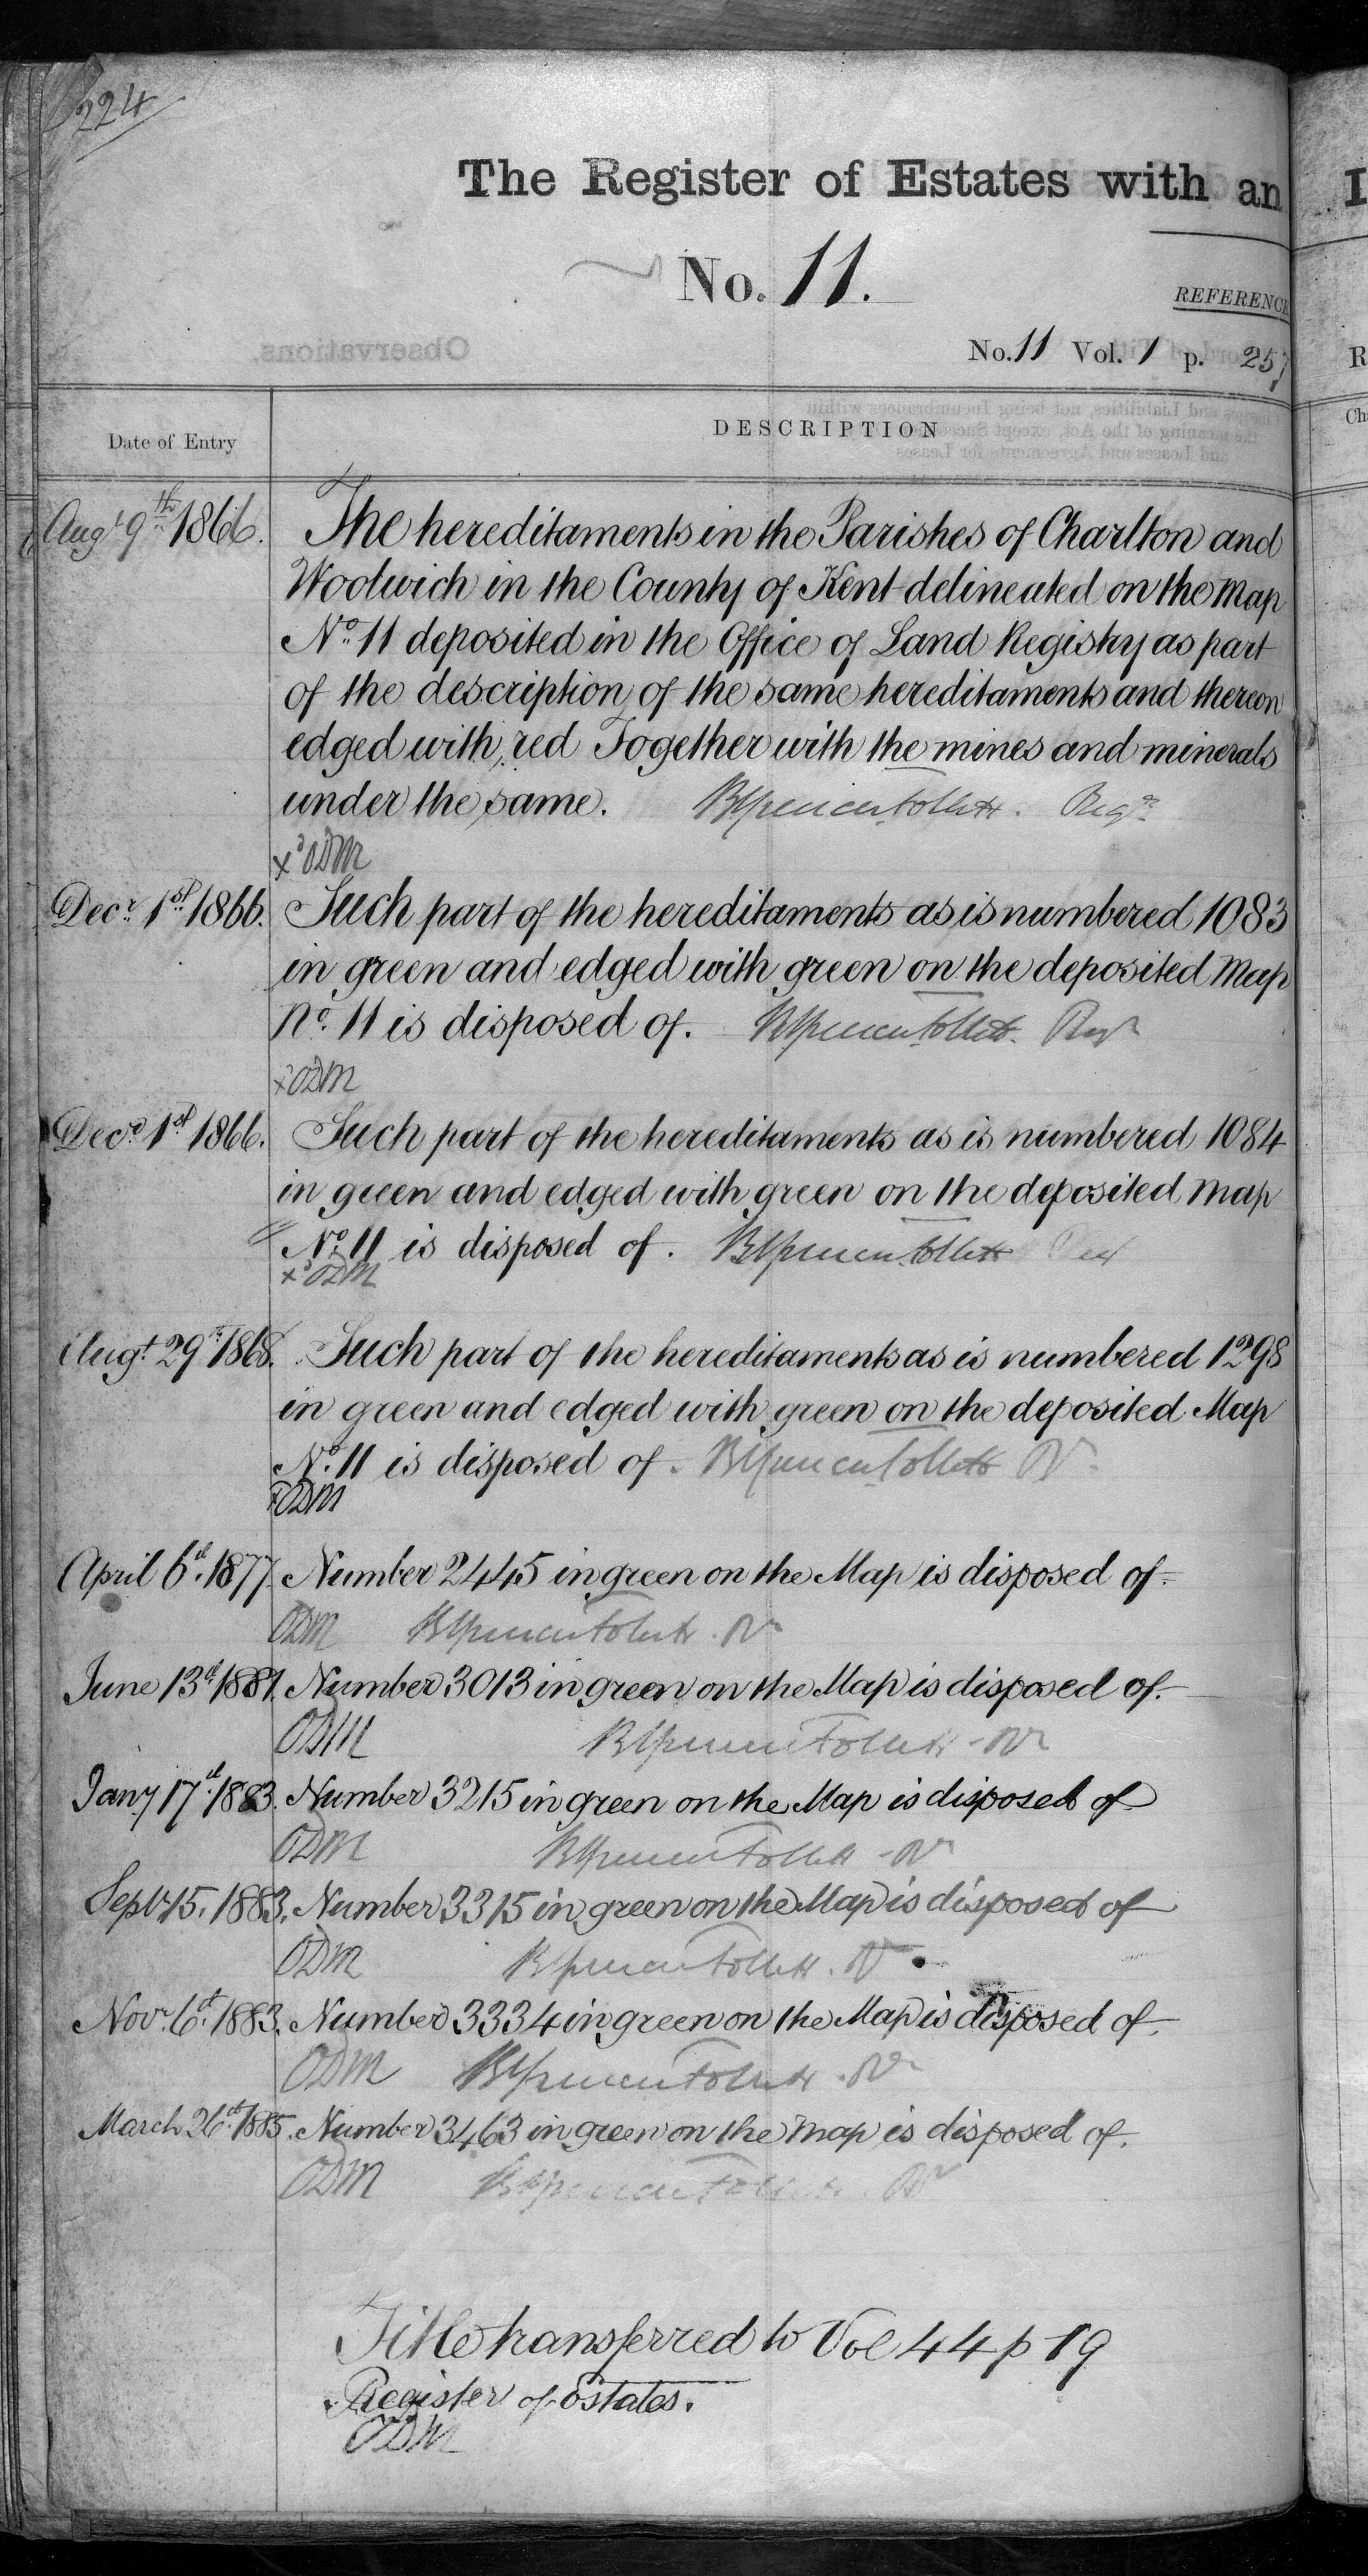 224
The Register of Estates with an
No. 11.
REFERENCE
No. 11 Vol. 1 p. 257
Observations.
Date of Entry
DESCRIPTION
Augt 9th 1866. The hereditaments in the Parishes of Charlton and
Woolwich in the County of Kent delineated on the Map
No. 11 deposited in the Office of Land Registry as part
of the description of the same hereditaments and thereon
edged with red Together with the mines and minerals
under the same. BSpencer Follett. Regr
x ODM
Decr 1st 1866. Such part of the hereditaments as is numbered 1083
in green and edged with green on the deposited Map
No. 11 is disposed of. BSpencer Follett. Regr
x ODM
Decr 1st 1866. Such part of the hereditaments as is numbered 1084
in green and edged with green on the deposited Map
No. 11 is disposed of. BSpencer Follett
x ODM
Augt 29th 1868. Such part of the hereditaments as is numbered 1298
in green and edged with green on the deposited Map
No. 11 is disposed of. BSpencer Follett Rr
ODM
April 6th 1877. Number 2445 in green on the Map is disposed of.
ODM BSpencer Follett. Rr
June 13th 1881. Number 3013 in green on the Map is disposed of.
ODM BSpencer Follett Rr
Jany 17th 1883. Number 3215 in green on the Map is disposed of
ODM BSpencer Follett Rr
Septr 15. 1883. Number 3315 in green on the Map is disposed of
ODM BSpencer Follett. Rr
Novr. 6th. 1883. Number 3334 in green on the Map is disposed of.
ODM BSpencer Follett. Rr
March 26th 1885. Number 3463 in green on the Map is disposed of.
ODM BSpencer Follett. Rr
Title transferred to Vol 44 p 19
Register of Estates.
ODM